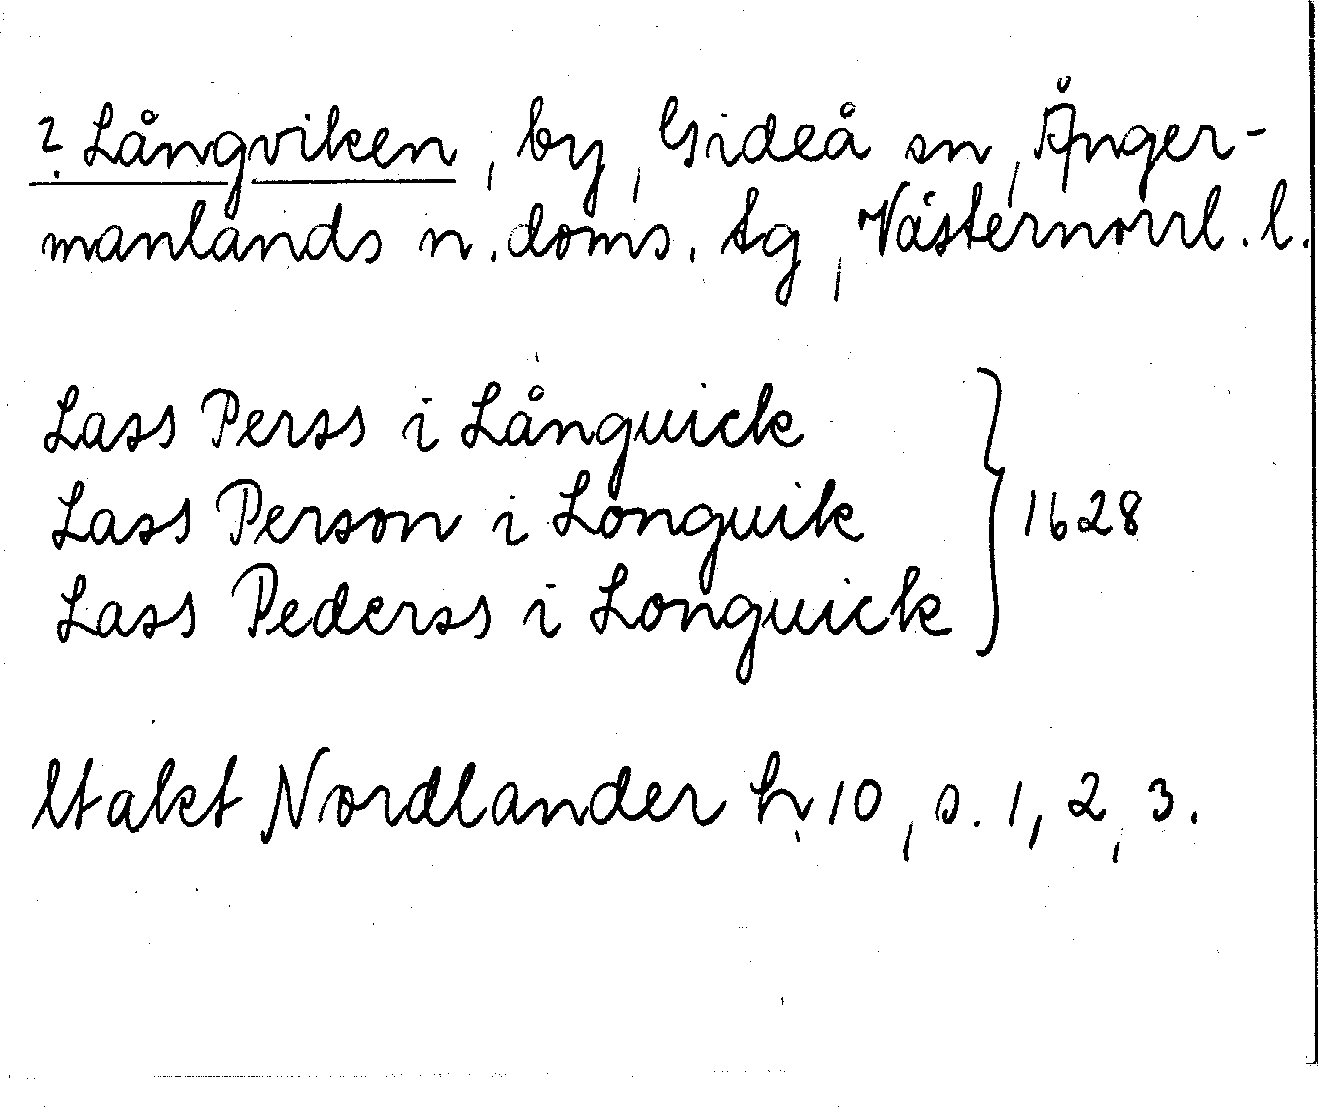 ? Långviken, by, Gideå sn, Ånger-
manlands n. doms. tg, Västernorrl. l.
Lass Perss i Långuick
Lass Person i Longuik
Lass Pederss i Longuick
1628
Utakt Nordlander h. 10, s. 1, 2, 3.